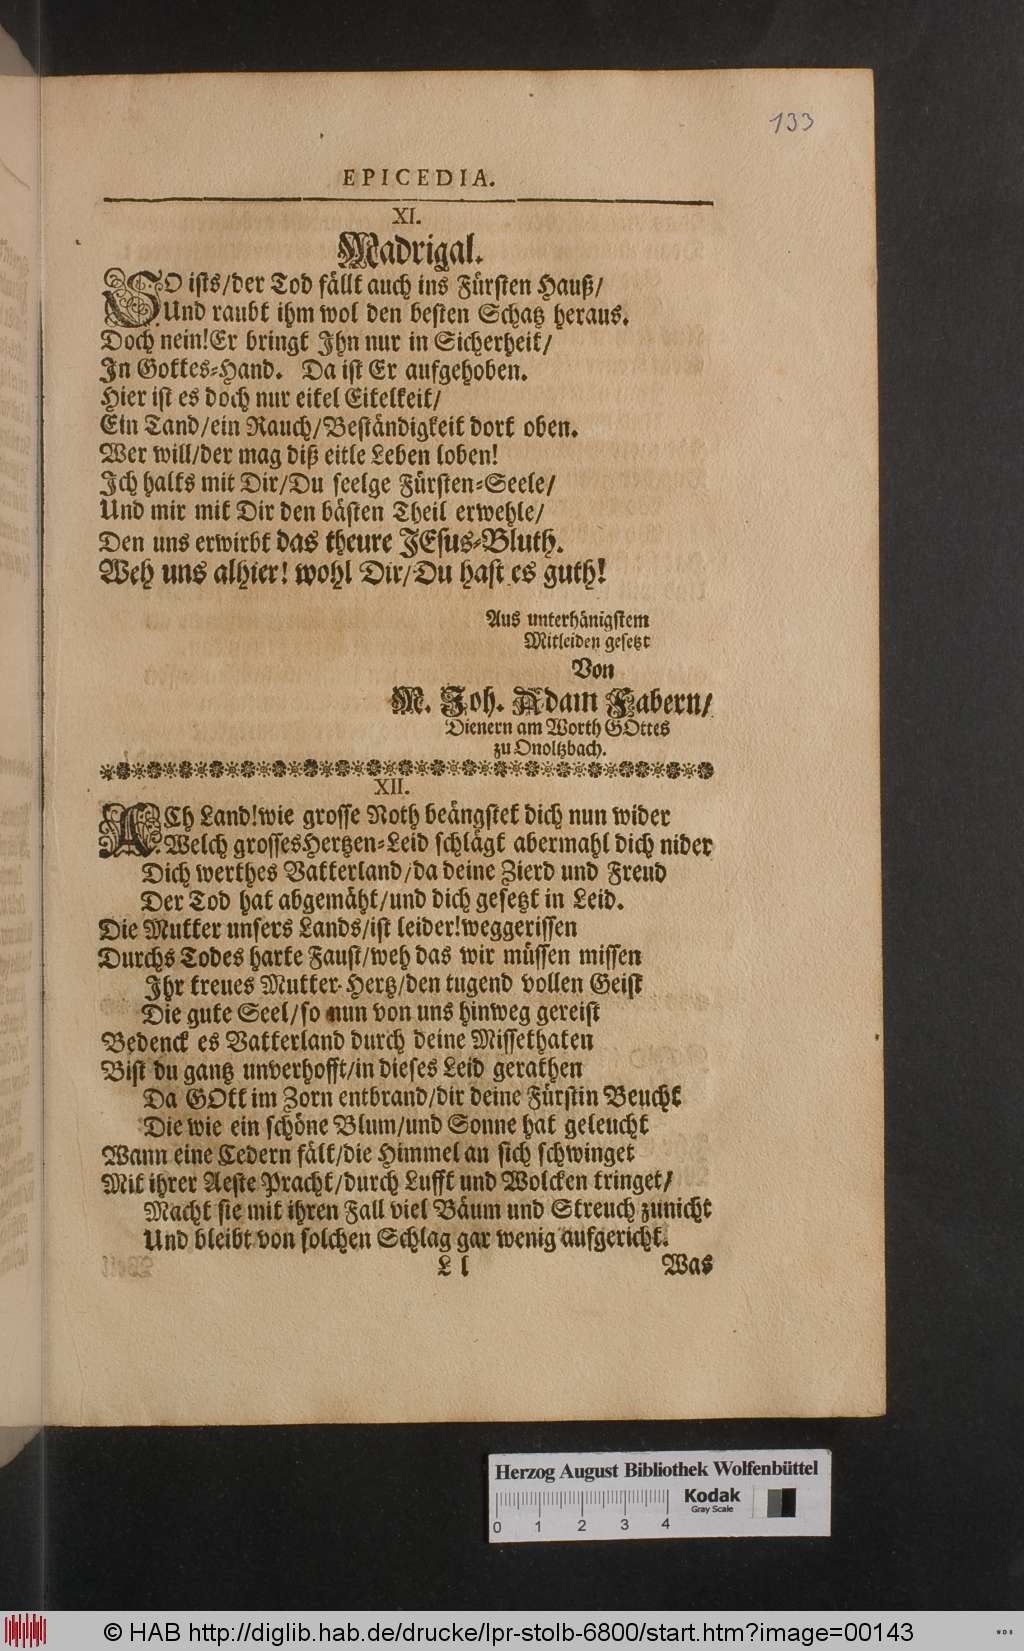 133
EPICEDIA.
XI.
Madrigal.
SO ists/der Tod fällt auch ins Fürsten Hauß/
Und raubt ihm wol den besten Schatz heraus.
Doch nein!Er bringt Ihn nur in Sicherheit/
In Gottes-Hand. Da ist Er aufgehoben.
Hier ist es doch nur eitel Eitelkeit/
Ein Tand/ein Rauch/Beständigkeit dort oben.
Wer will/der mag diß eitle Leben loben!
Ich halts mit Dir/Du seelge Fürsten-Seele/
Und mir mit Dir den bästen Theil erwehle/
Den uns erwirbt das theure JEsus-Bluth.
Weh uns alhier! wohl Dir/Du hast es guth!
Aus unterhänigstem
Mitleiden gesetzt
Von
M. Joh. Adam Fabern/
Dienern am Worth GOttes
zu Onoltzbach.
XII.
ACh Land!wie grosse Noth beängstet dich nun wider
Welch grosses Hertzen-Leid schlägt abermahl dich nider
Dich werthes Vatterland/da deine Zierd und Freud
Der Tod hat abgemäht/und dich gesetzt in Leid.
Die Mutter unsers Lands/ist leider!weggerissen
Durchs Todes harte Faust/weh das wir müssen missen
Ihr treues Mutter-Hertz/den tugend vollen Geist
Die gute Seel/so nun von uns hinweg gereist
Bedenck es Vatterland durch deine Missethaten
Bist du gantz unverhofft/in dieses Leid gerathen
Da GOtt im Zorn entbrand/dir deine Fürstin Beucht
Die wie ein schöne Blum/und Sonne hat geleucht
Wann eine Cedern fält/die Himmel an sich schwinget
Mit ihrer Aeste Pracht/durch Lufft und Wolcken tringet/
Macht sie mit ihren Fall viel Bäum und Streuch zunicht
Und bleibt von solchen Schlag gar wenig aufgericht.
L l Was
Herzog August Bibliothek Wolfenbüttel
Kodak
Gray Scale
0 1 2 3 4
© HAB http://diglib.hab.de/drucke/lpr-stolb-6800/start.htm?image=00143